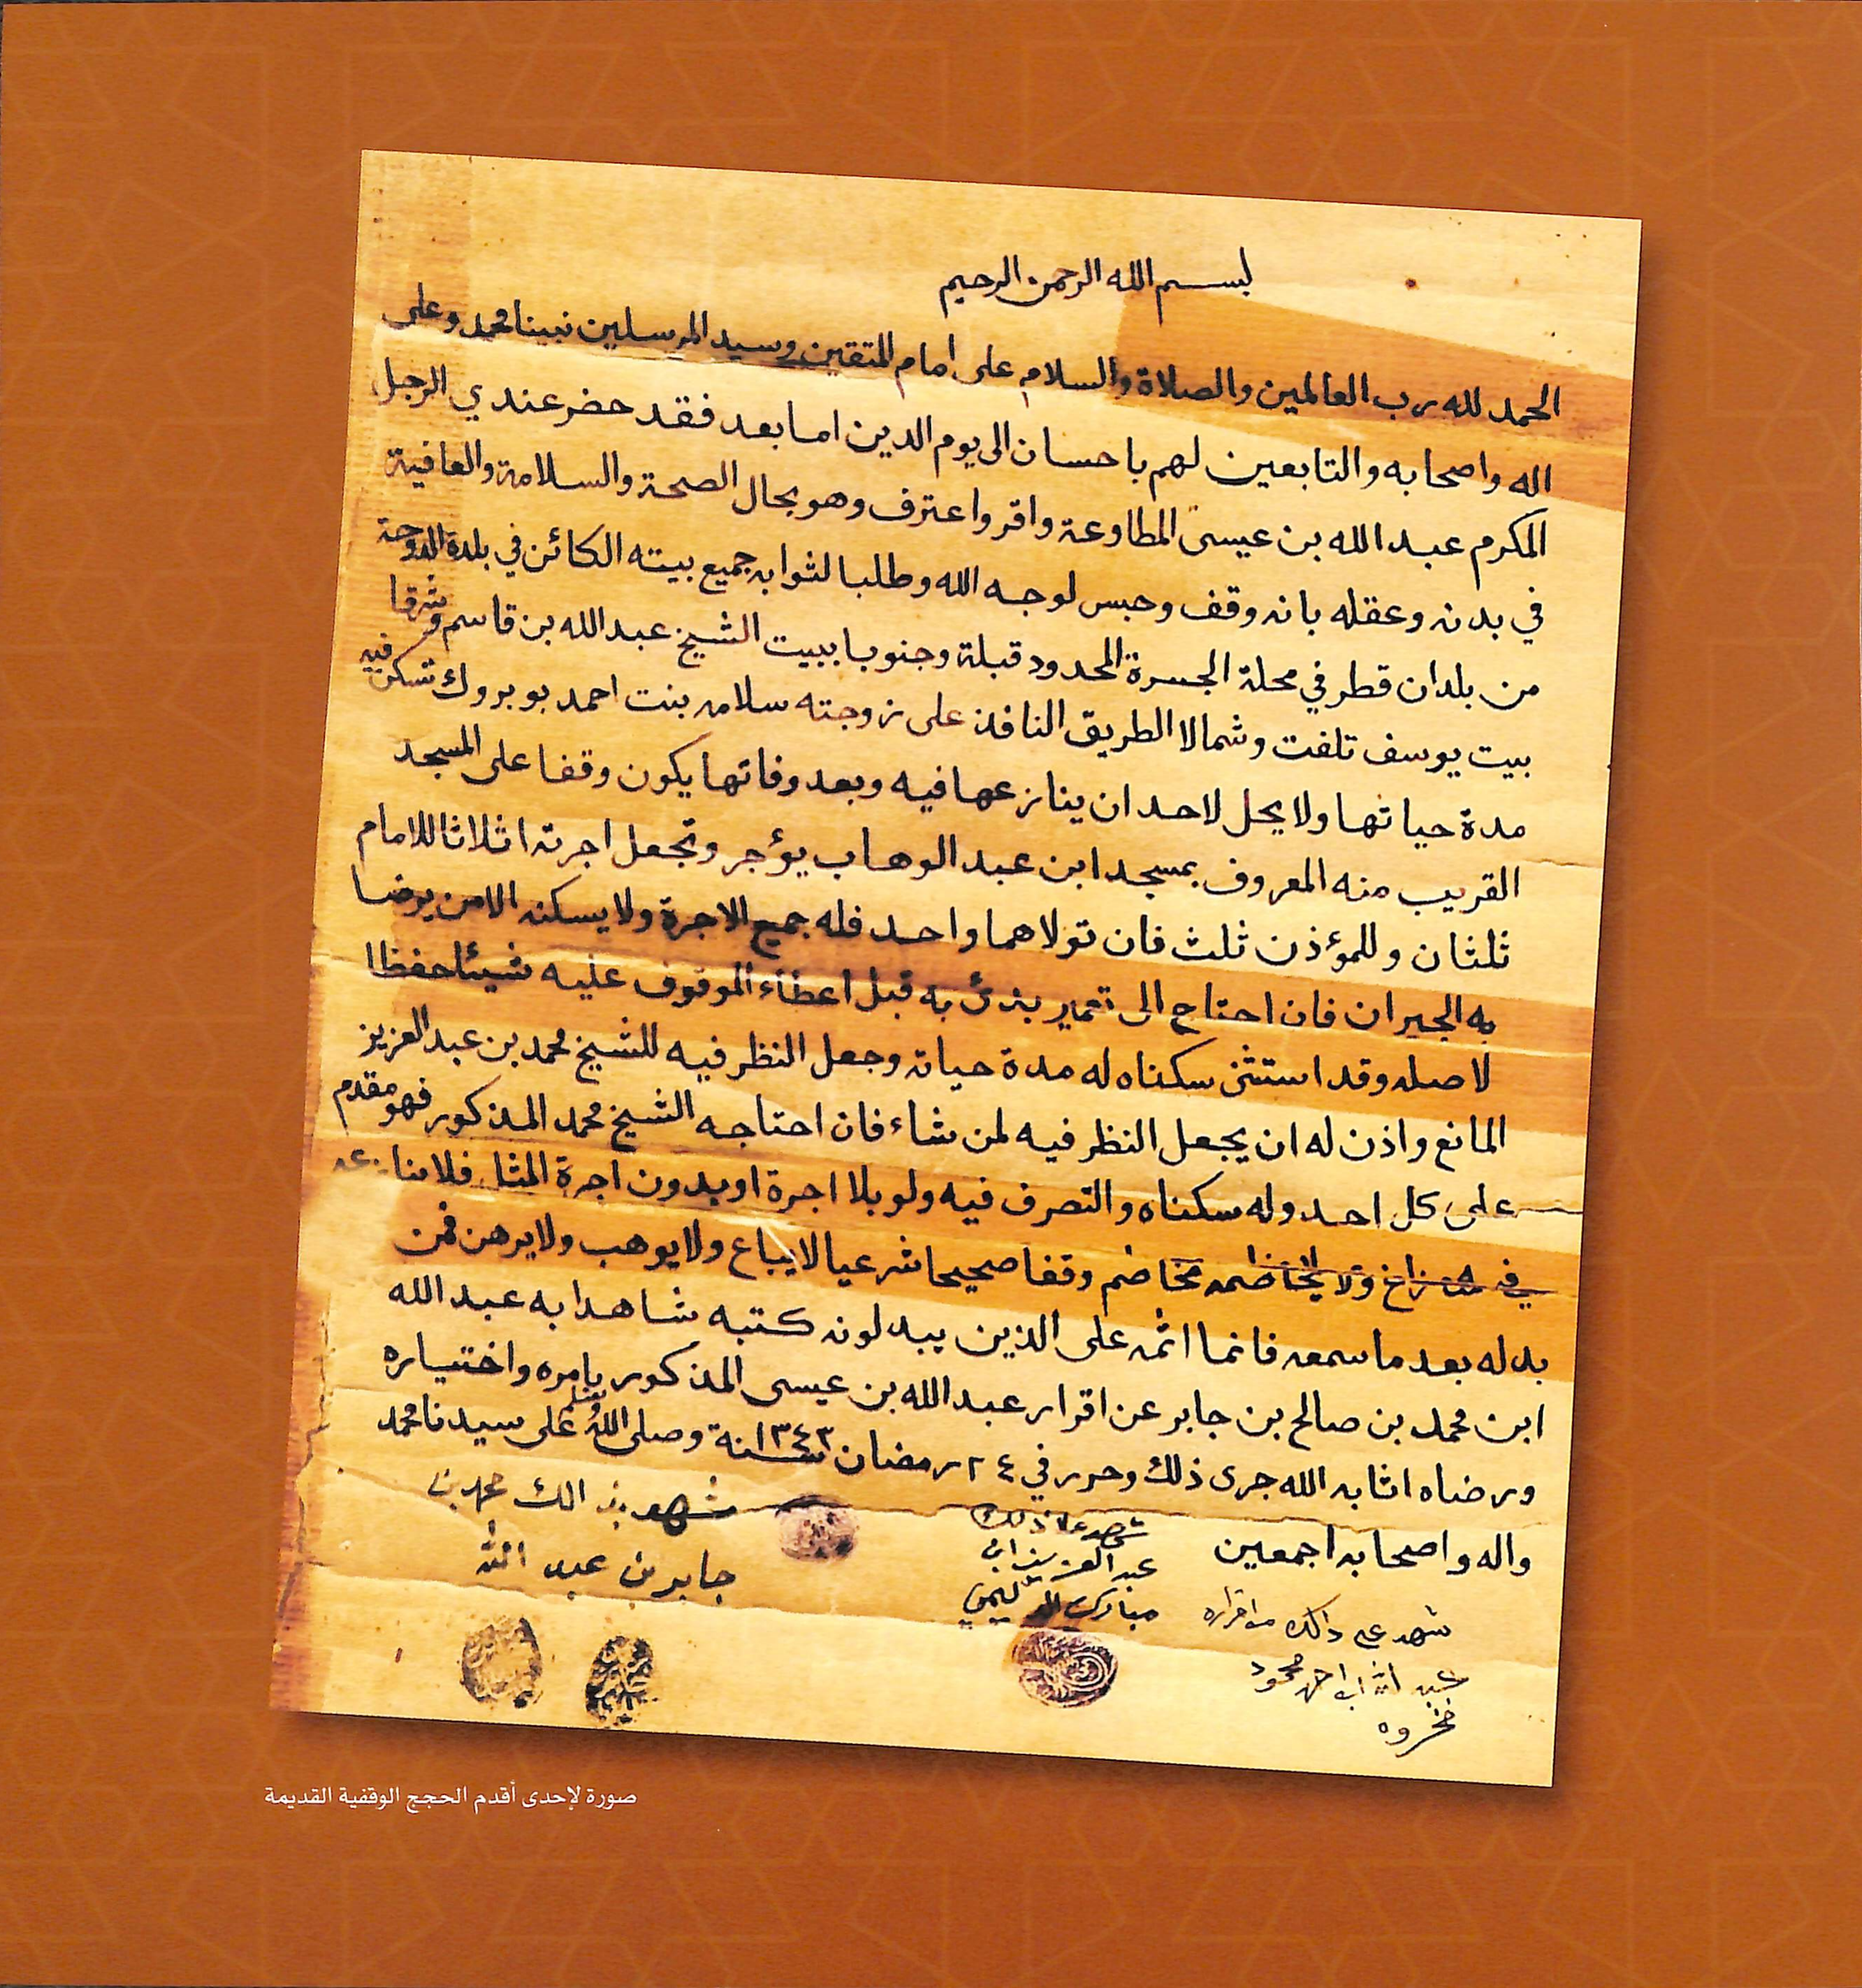 بسم الله الرحمن الرحيم
الحمد لله رب العالمين والصلاة والسلام على امام المتقين وسيد المرسلين نبينا محمد وعلى
اله واصحابه والتابعين لهم باحسان الى يوم الدين اما بعد فقد حضر عندي الرجل
المكرم عبد الله بن عيسى المطاوعة واقر واعترف وهو بحال الصحة والسلامة والعافية
في بدنه وعقله بانه وقف وحبس لوجه الله وطلبا لثوابه جميع بيته الكائن في بلدة الدوحة
من بلدان قطر في محلة الجسرة المحدود قبلة وجنوبا ببيت الشيخ عبد الله بن قاسم وشرقا
بيت يوسف تلفت وشمالا الطريق النافذ على زوجته سلامه بنت احمد بو بروك تسكن فيه
مدة حياتها ولا يحل لاحد ان ينازعها فيه وبعد وفاتها يكون وقفا على المسجد
القريب منه المعروف بمسجد ابن عبد الوهاب يؤجر وتجعل اجرته اثلاثا للامام
ثلثان وللمؤذن ثلث فان تولاهما واحد فله جميع الاجرة ولا يسكنه الا من يرضا
به الجيران فان احتاج الى تعمير بدئ به قبل اعطاء الموقوف عليه شيئا حفظا
لاصله وقد استثنى سكناه له مدة حياته وجعل النظر فيه للشيخ محمد بن عبد العزيز
المانع واذن له ان يجعل النظر فيه لمن شاء فان احتاجه الشيخ محمد المذكور فهو مقدم
على كل احد وله سكناه والتصرف فيه ولو بلا اجرة او بدون اجرة المثل فلا ينازعه
فيه منازع ولا يخاصمه مخاصم وقفا صحيحا شرعيا لا يباع ولا يوهب ولا يرهن فمن
بدله بعد ما سمعه فانما اثمه على الذين يبدلونه كتبه شاهدا به عبد الله
ابن محمد بن صالح بن جابر عن اقرار عبد الله بن عيسى المذكور بامره واختياره
ورضاه اثابه الله جرى ذلك وحرر في ٢٤ رمضان سنة ١٣٤٣ وصلى الله وسلم على سيدنا محمد
واله واصحابه اجمعين
شهد على ذلك
عبد العزيز ابن
مبارك
شهد بذالك محمد بن
جابر بن عبد الله
شهد على ذالك من اقراره
عبد الله ابن احمد محمود
فخروه
صورة لإحدى أقدم الحجج الوقفية القديمة